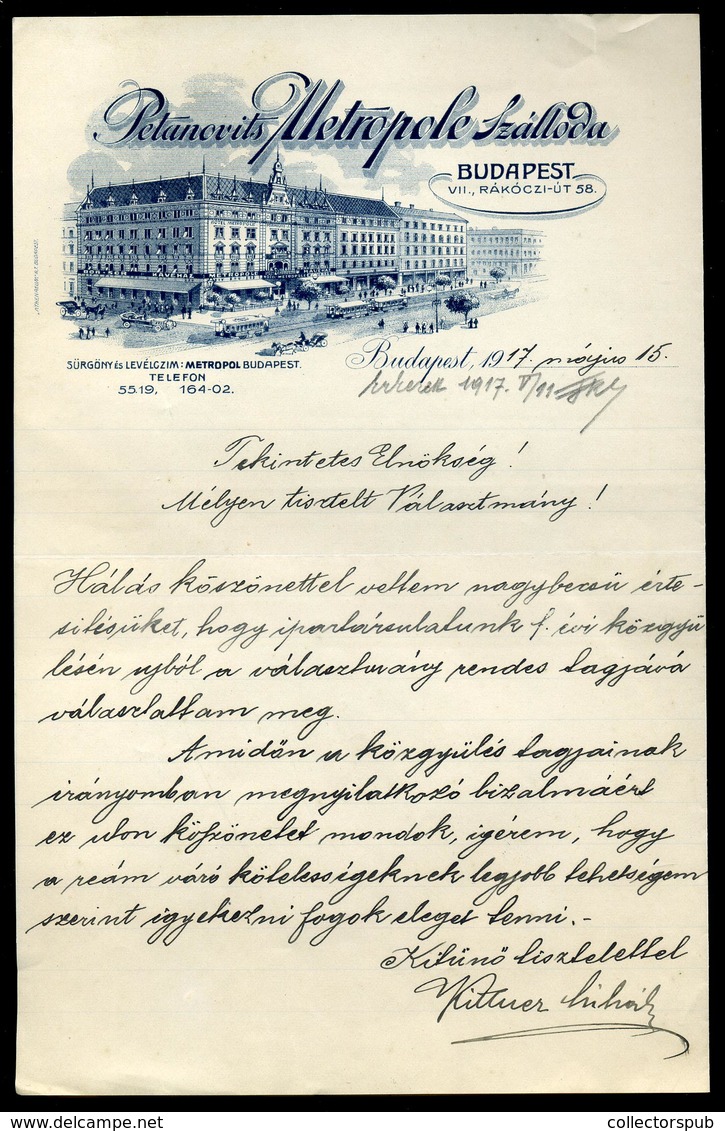 Petanovits Metropole Szálloda
BUDAPEST
VII., RÁKÓCZI-ÚT 58.
HOTEL METROPOLE
KÁVÉHÁZ
SÜRGÖNY és LEVÉLCZIM: METROPOL BUDAPEST.
TELEFON
55.19, 164-02.
Budapest, 1917. május 15.
érkezett 1917. V/11
Tekintetes Elnökség!
Mélyen tisztelt Választmány!
Hálás köszönettel vettem nagybecsü érte-
sitésüket, hogy ipartársulatunk f. évi közgyü
lésén ujból a választmány rendes tagjává
választattam meg.
Amidőn a közgyülés tagjainak
irányomban megnyilatkozó bizalmáért
ez uton köszönetet mondok, igérem, hogy
a reám váró kötelességeknek legjobb tehetségem
szerint igyekezni fogok eleget tenni.-
Kitünő tisztelettel
Kittner Mihály
collectorspub